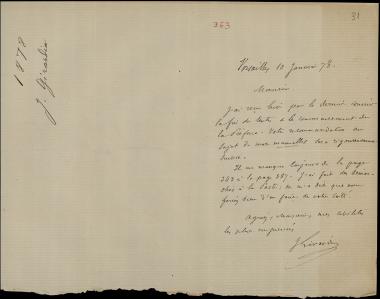 363
31
1878
J. Girardin
Versailles 10 Janvier 78.
Monsieur
J'ai reçu hier par le dernier courrier
la fin de texte et le commencement de
la Préface. Votre recommandation au
sujet de mes manuelles sera rigoureusement
suivie.
Il me manque toujours de la page
363 à la page 387. J'ai fait des démar-
ches à la Poste, on m'a dit que vous
feriez bien d'en faire de votre côté.
Agréez, Monsieur, mes salutations
les plus empressées
J Girardin